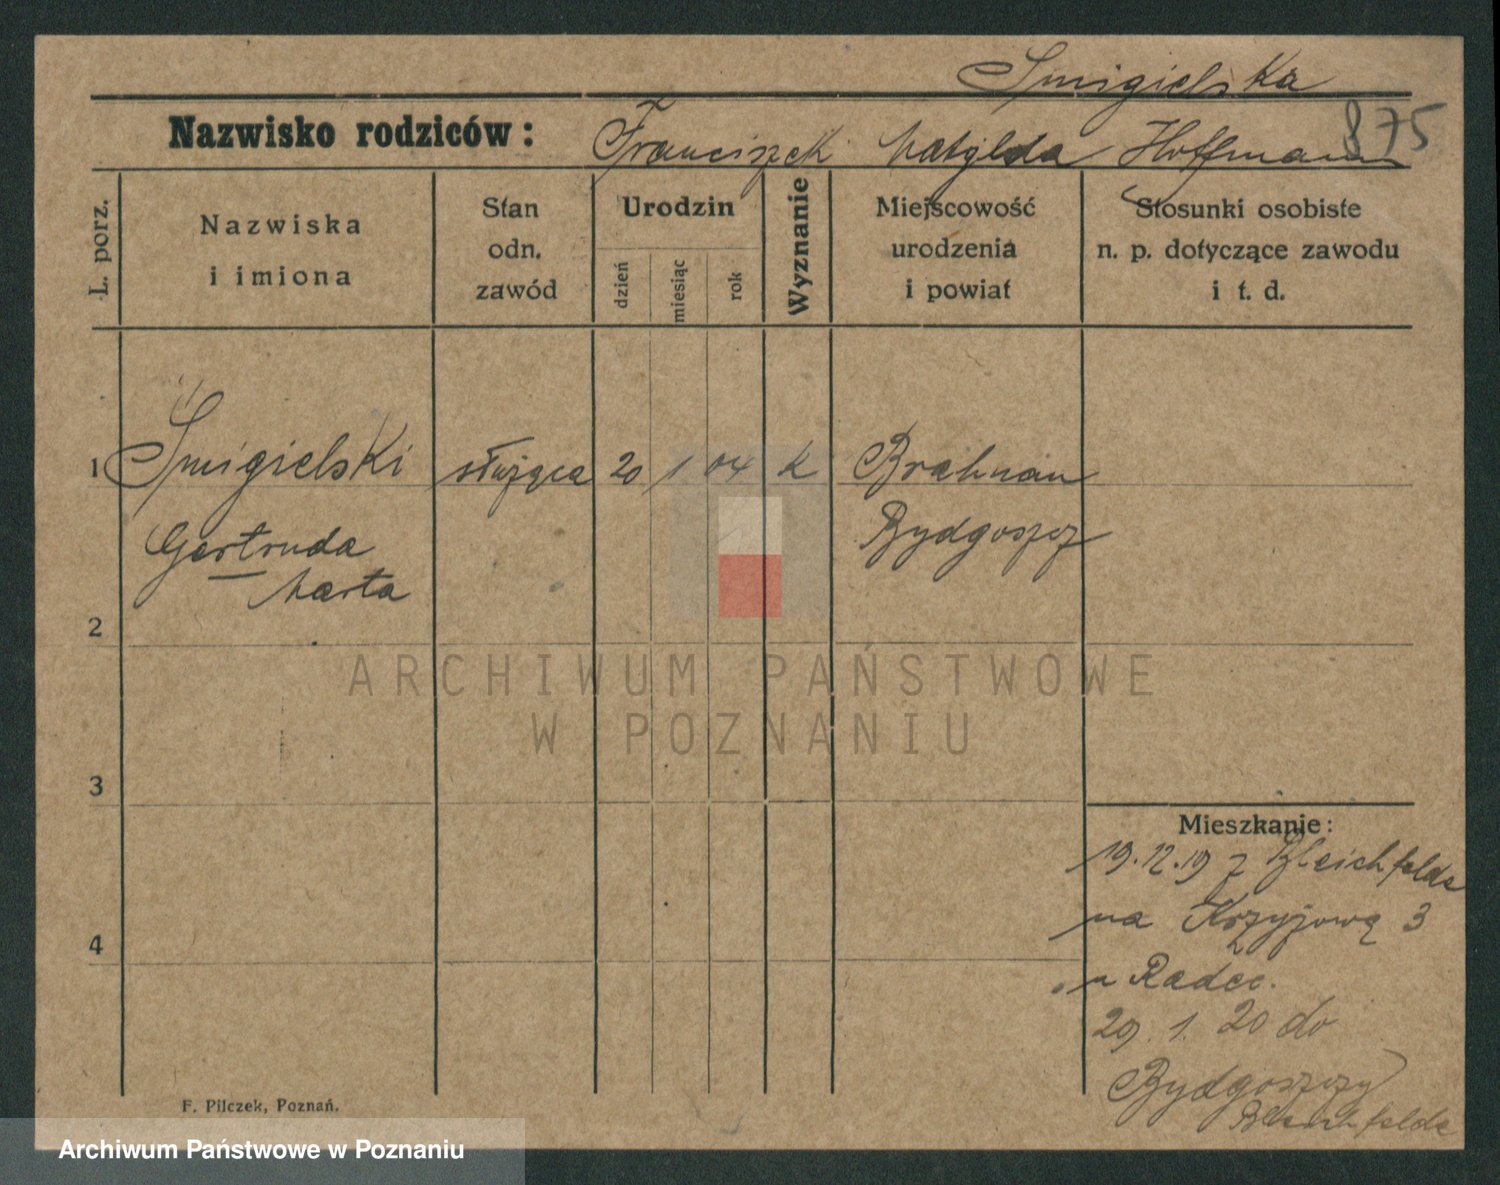 Śmigielska
875
Nazwisko rodziców: Franciszek Matylda Hoffmann
L. porz.
Nazwiska
i imiona
Stan
odn.
zawód
Urodzin
dzień
miesiąc
rok
Wyznanie
Miejscowość
urodzenia
i powiat
Stosunki osobiste
n. p. dotyczące zawodu
i t. d.
1 Śmigielski służąca 20 1 04 k Brahnau
Gertruda Bydgoszcz
Marta
2
3
4
ARCHIWUM PAŃSTWOWE
W POZNANIU
Mieszkanie:
19.12.19 z Bleichfelde
na Krzyżową 3
u Radec.
29.1.20 do
Bydgoszczy
Bleichfelde
F. Pilczek, Poznań.
Archiwum Państwowe w Poznaniu